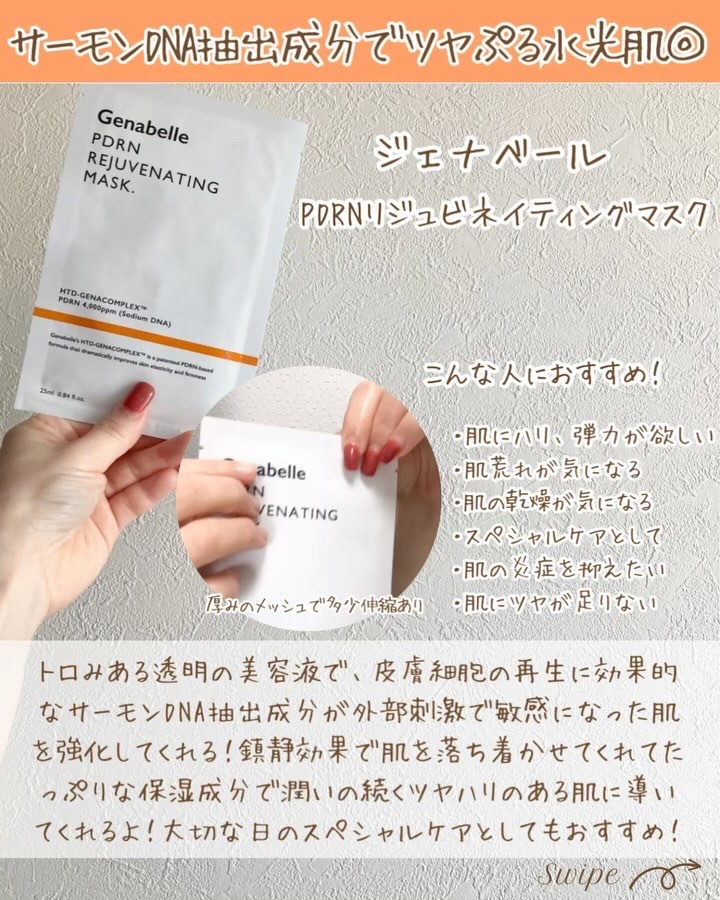 サーモンDNA抽出成分でツヤぷる水光肌◎
Genabelle
PDRN
REJUVENATING
MASK.
HTD-GENACOMPLEX™
PDRN 4,000ppm (Sodium DNA)
Genabelle's HTD-GENACOMPLEX™ is a patented PDRN-based
formula that dramatically improves skin elasticity and firmness
25ml 0.84 fl.oz.
ジェナベール
PDRNリジュビネイティングマスク
こんな人におすすめ!
・肌にハリ、弾力が欲しい
・肌荒れが気になる
・肌の乾燥が気になる
・スペシャルケアとして
・肌の炎症を抑えたい
・肌にツヤが足りない
abelle
VENATING
厚みのメッシュで多少伸縮あり
トロみある透明の美容液で、皮膚細胞の再生に効果的
なサーモンDNA抽出成分が外部刺激で敏感になった肌
を強化してくれる!鎮静効果で肌を落ち着かせてくれてた
っぷりな保湿成分で潤いの続くツヤハリのある肌に導い
てくれるよ!大切な日のスペシャルケアとしてもおすすめ!
Swipe